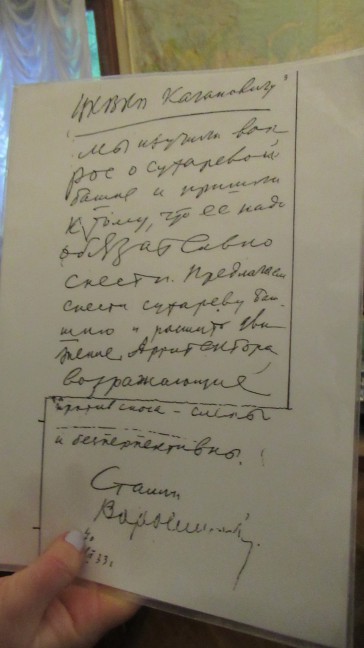 ЦКВКП Кагановичу
Мы изучили воп
рос о сухаревой
башне и пришли
к тому, что ее надо
обязательно
снести. Предлагаем
снести сухареву баш
ню и расшить дви
жение. Архитектора,
возражающие
против сноса - слепы
и бесперспективны.
Сталин
Ворошилов
33г